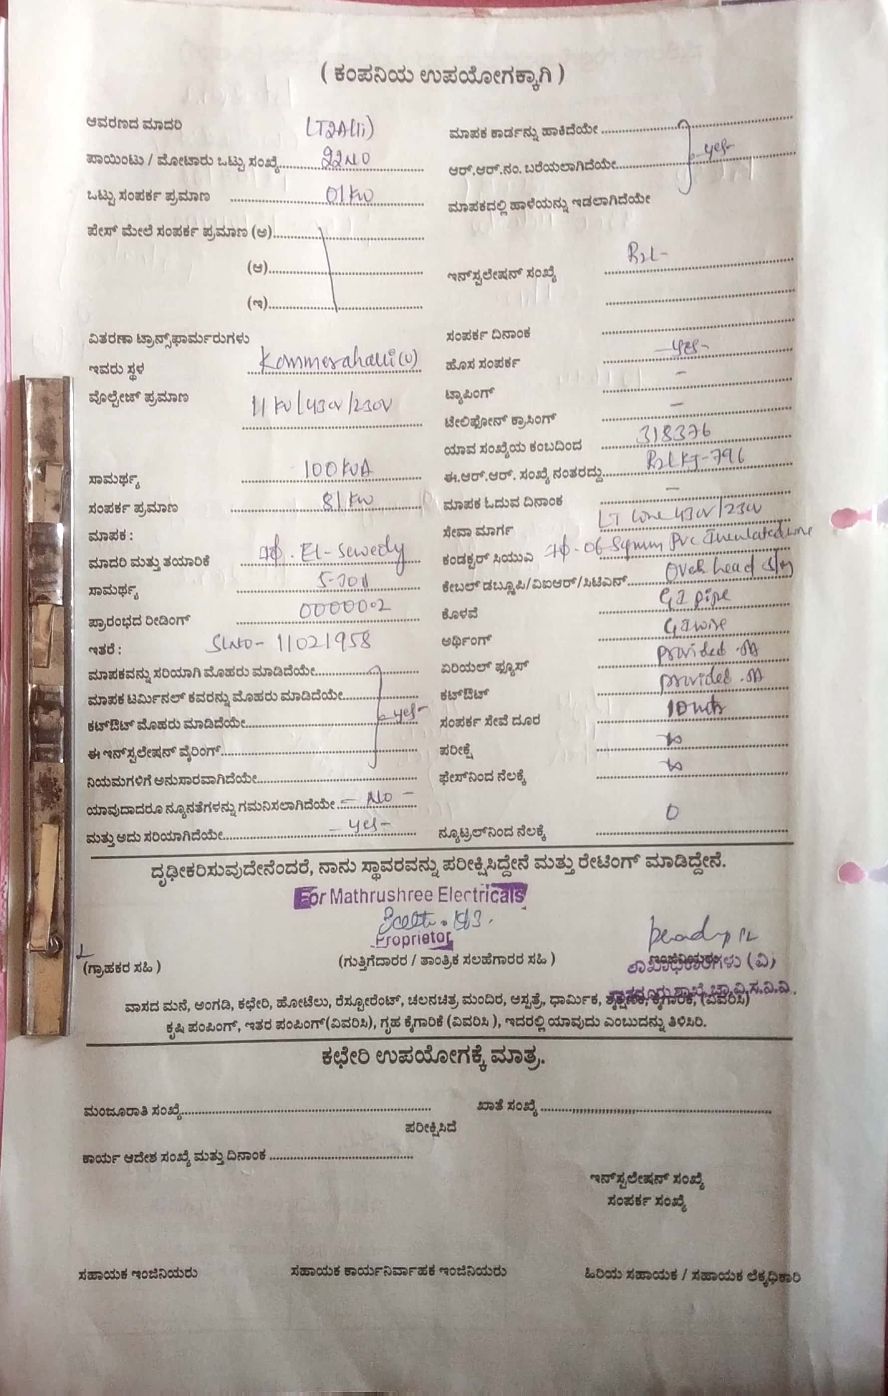 ( ಕಂಪನಿಯ ಉಪಯೋಗಕ್ಕಾಗಿ )
ಆವರಣದ ಮಾದರಿ LT2A(ii)
ಪಾಯಿಂಟು / ಮೋಟಾರು ಒಟ್ಟು ಸಂಖ್ಯೆ 22NO
ಒಟ್ಟು ಸಂಪರ್ಕ ಪ್ರಮಾಣ 01KW
ಪೇಸ್ ಮೇಲೆ ಸಂಪರ್ಕ ಪ್ರಮಾಣ (ಅ)
(ಆ)
(ಇ)
ವಿತರಣಾ ಟ್ರಾನ್ಸ್‌ಫಾರ್ಮರುಗಳು
ಇವರು ಸ್ಥಳ Kommerahalli(v)
ವೊಲ್ಟೇಜ್ ಪ್ರಮಾಣ 11KV/430V/230V
ಸಾಮರ್ಥ್ಯ 100KVA
ಸಂಪರ್ಕ ಪ್ರಮಾಣ 81KW
ಮಾಪಕ :
ಮಾದರಿ ಮತ್ತು ತಯಾರಿಕೆ 1ϕ. El-Sewedy
ಸಾಮರ್ಥ್ಯ 5-30A
ಪ್ರಾರಂಭದ ರೀಡಿಂಗ್ 000000.2
ಇತರೆ : SLNO- 11021958
ಮಾಪಕವನ್ನು ಸರಿಯಾಗಿ ಮೊಹರು ಮಾಡಿದೆಯೇ
ಮಾಪಕ ಟರ್ಮಿನಲ್ ಕವರನ್ನು ಮೊಹರು ಮಾಡಿದೆಯೇ
ಕಟ್‌ಔಟ್ ಮೊಹರು ಮಾಡಿದೆಯೇ -yes-
ಈ ಇನ್‌ಸ್ಟಲೇಷನ್ ವೈರಿಂಗ್
ನಿಯಮಗಳಿಗೆ ಅನುಸಾರವಾಗಿದೆಯೇ
ಯಾವುದಾದರೂ ನ್ಯೂನತೆಗಳನ್ನು ಗಮನಿಸಲಾಗಿದೆಯೇ - NO -
ಮತ್ತು ಅದು ಸರಿಯಾಗಿದೆಯೇ - yes-
ಮಾಪಕ ಕಾರ್ಡನ್ನು ಹಾಕಿದೆಯೇ
ಆರ್.ಆರ್.ನಂ. ಬರೆಯಲಾಗಿದೆಯೇ -yes-
ಮಾಪಕದಲ್ಲಿ ಹಾಳೆಯನ್ನು ಇಡಲಾಗಿದೆಯೇ
ಇನ್‌ಸ್ಟಲೇಷನ್ ಸಂಖ್ಯೆ
ಸಂಪರ್ಕ ದಿನಾಂಕ
ಹೊಸ ಸಂಪರ್ಕ -yes-
ಟ್ಯಾಪಿಂಗ್ -
ಟೇಲಿಫೋನ್ ಕ್ರಾಸಿಂಗ್ -
ಯಾವ ಸಂಖ್ಯೆಯ ಕಂಬದಿಂದ 318376
ಈ.ಆರ್.ಆರ್. ಸಂಖ್ಯೆ ನಂತರದ್ದು
ಮಾಪಕ ಓದುವ ದಿನಾಂಕ -
ಸೇವಾ ಮಾರ್ಗ LT Line 430V/230V
ಕಂಡಕ್ಟರ್ ಸಿಯುಎ 1ϕ-06-Sqmm PVC Insulated wire
ಕೇಬಲ್ ಡಬ್ಲೂಪಿ/ವಿಐಆರ್/ಸಿಟಿಎನ್ Over head
ಕೊಳವೆ GI pipe
ಅರ್ಥಿಂಗ್ GI wire
ಏರಿಯಲ್ ಫ್ಯೂಸ್ provided
ಕಟ್‌ಔಟ್ provided
ಸಂಪರ್ಕ ಸೇವೆ ದೂರ 10 mtr
ಪರೀಕ್ಷೆ
ಫೇಸ್‌ನಿಂದ ನೆಲಕ್ಕೆ
ನ್ಯೂಟ್ರಲ್‌ನಿಂದ ನೆಲಕ್ಕೆ 0
ದೃಢೀಕರಿಸುವುದೇನೆಂದರೆ, ನಾನು ಸ್ಥಾವರವನ್ನು ಪರೀಕ್ಷಿಸಿದ್ದೇನೆ ಮತ್ತು ರೇಟಿಂಗ್ ಮಾಡಿದ್ದೇನೆ.
For Mathrushree Electricals
Proprietor
(ಗ್ರಾಹಕರ ಸಹಿ )
(ಗುತ್ತಿಗೆದಾರರ / ತಾಂತ್ರಿಕ ಸಲಹೆಗಾರರ ಸಹಿ )
ಶಾಖಾಧಿಕಾರಿಗಳು (ವಿ)
ವಾಸದ ಮನೆ, ಅಂಗಡಿ, ಕಛೇರಿ, ಹೋಟೆಲು, ರೆಸ್ಟೋರೆಂಟ್, ಚಲನಚಿತ್ರ ಮಂದಿರ, ಆಸ್ಪತ್ರೆ, ಧಾರ್ಮಿಕ, ಶೈಕ್ಷಣಿಕ, ಕೈಗಾರಿಕೆ, (ವಿವರಿಸಿ)
ಕೃಷಿ ಪಂಪಿಂಗ್, ಇತರ ಪಂಪಿಂಗ್(ವಿವರಿಸಿ), ಗೃಹ ಕೈಗಾರಿಕೆ (ವಿವರಿಸಿ ), ಇದರಲ್ಲಿ ಯಾವುದು ಎಂಬುದನ್ನು ತಿಳಿಸಿರಿ.
ಕಛೇರಿ ಉಪಯೋಗಕ್ಕೆ ಮಾತ್ರ.
ಮಂಜೂರಾತಿ ಸಂಖ್ಯೆ ಖಾತೆ ಸಂಖ್ಯೆ
ಪರೀಕ್ಷಿಸಿದೆ
ಕಾರ್ಯ ಆದೇಶ ಸಂಖ್ಯೆ ಮತ್ತು ದಿನಾಂಕ
ಇನ್‌ಸ್ಟಲೇಷನ್ ಸಂಖ್ಯೆ
ಸಂಪರ್ಕ ಸಂಖ್ಯೆ
ಸಹಾಯಕ ಇಂಜಿನಿಯರು ಸಹಾಯಕ ಕಾರ್ಯನಿರ್ವಾಹಕ ಇಂಜಿನಿಯರು ಹಿರಿಯ ಸಹಾಯಕ / ಸಹಾಯಕ ಲೆಕ್ಕಧಿಕಾರಿ